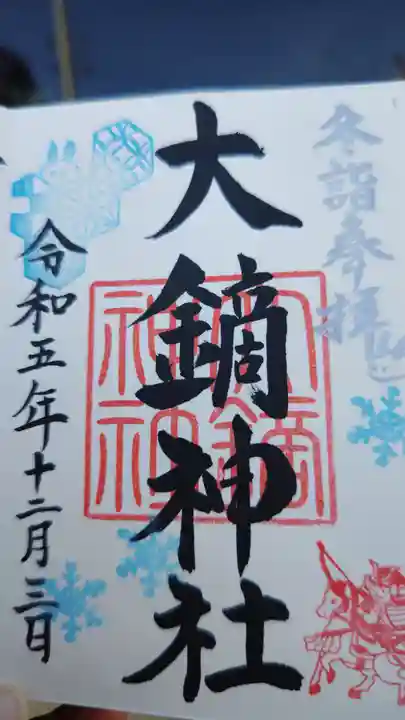 冬詣奉拝
大鏑神社
令和五年十二月三日
大鏑神社